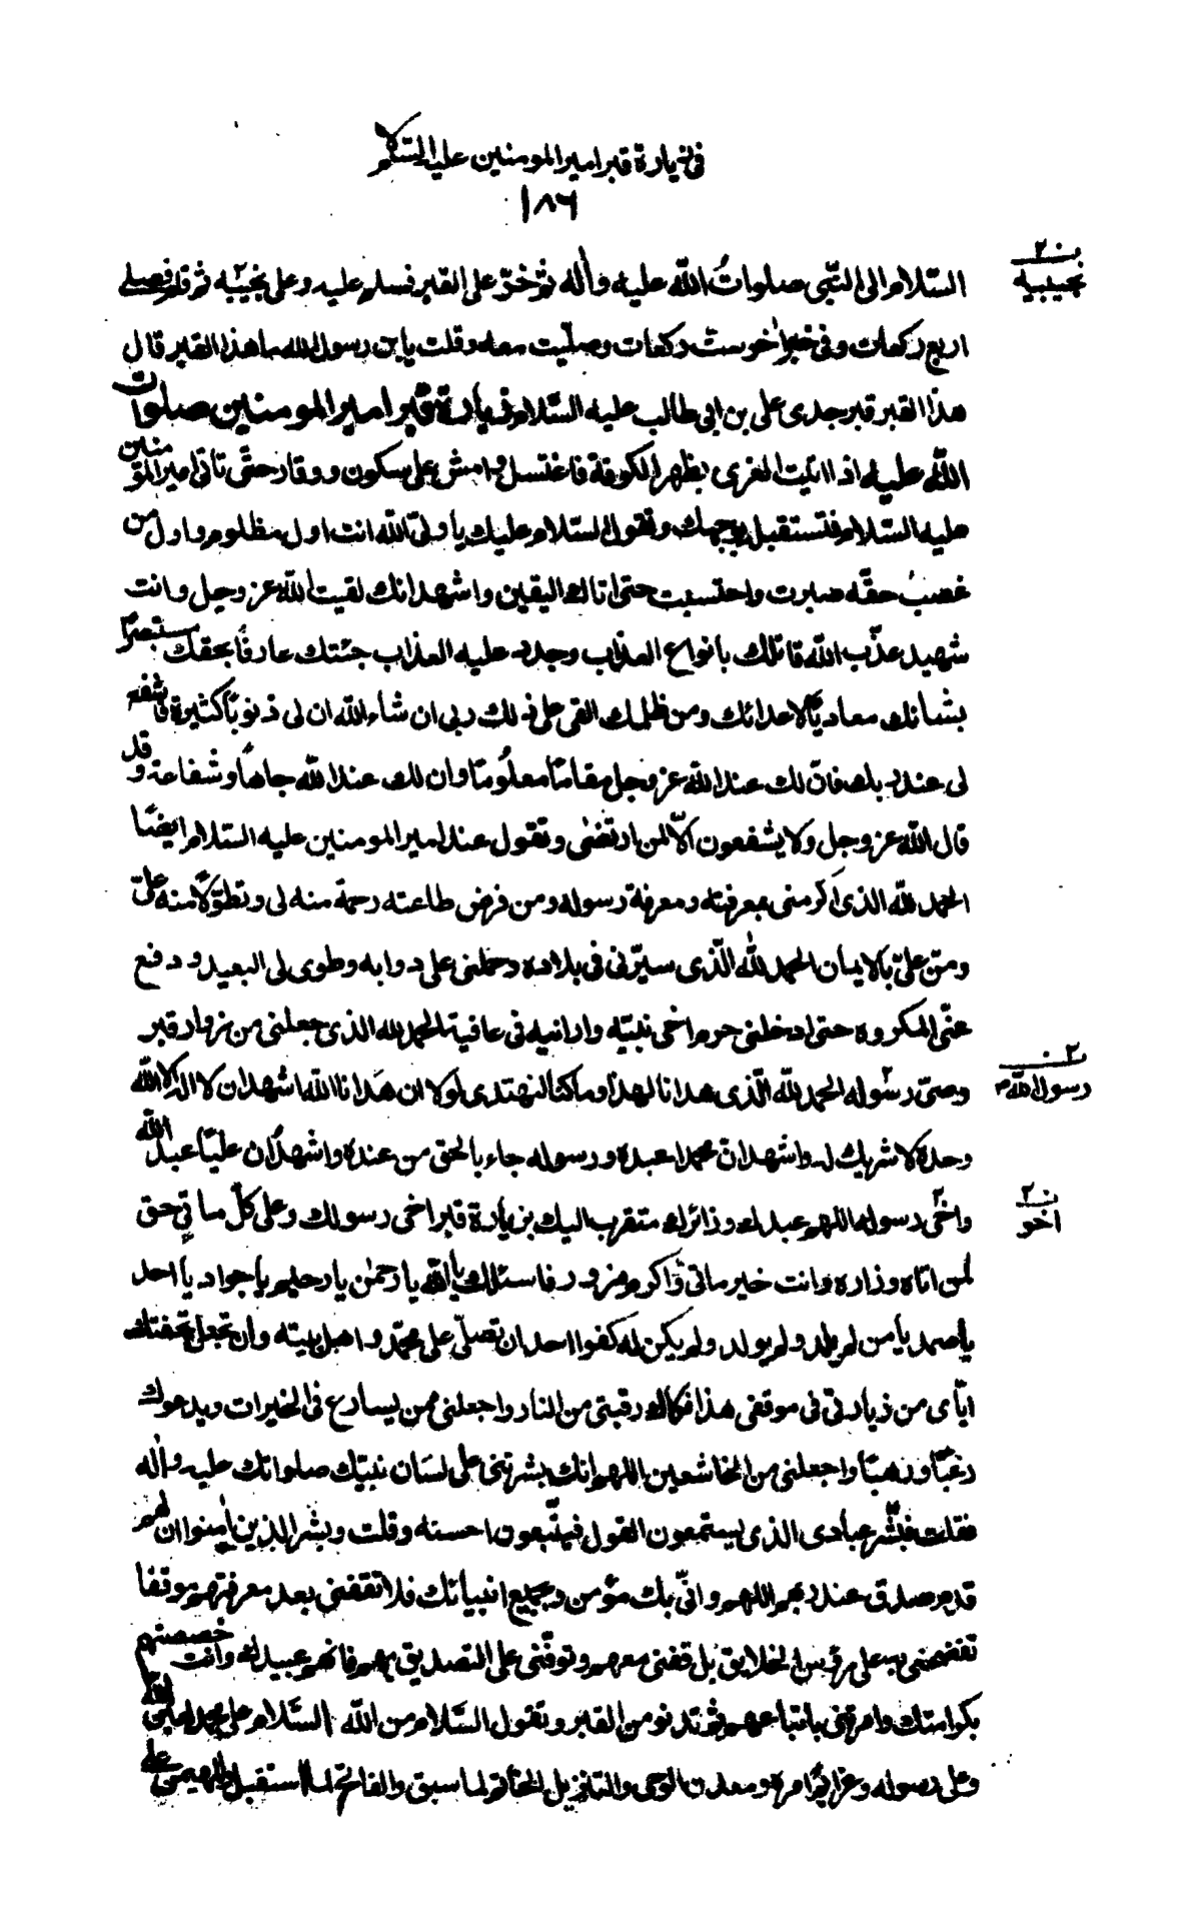 في زيارة قبر امير المومنين عليه السلام
١٨٦
السّلام الى النّبى صلوات اللّه عليه وأله ثم خرّ على القبر فسلم عليه وعلى نجيبه ثم قام فصلى
ن ٢
نجيبيه
اربع ركعات وفى خبر اخر ست ركعات وصلّيت معه وقلت يا بن رسول اللّه ما هذا القبر قال
هذا القبر قبر جدى على بن ابى طالب عليه السّلام زيارة قبر امير المومنين صلوات
اللّه عليه اذا اتيت الغرى بظهر الكوفة فاغتسل وامش على سكون ووقار حتّى تاتى امير المؤمنين
عليه السّلام فتستقبل بوجهك وتقول السّلام عليك يا ولىّ اللّه انت اول مظلوم واول من
غصب حقّه صبرت واحتسبت حتى اتاك اليقين واشهد انك لقيت اللّه عز وجل وانت
شهيد عذّب اللّه قاتلك بانواع العذاب وجدد عليه العذاب جئتك عارفًا بحقك مستبصرًا
بشانك معاديًا لاعدائك ومن ظلمك القى على ذلك ربى ان شاء اللّه ان لى ذنوبًا كثيرة فاشفع
لى عند ربك فان لك عند اللّه عز وجل مقامًا معلُومًا وان لك عند اللّه جاهًا وشفاعة وقد
قال اللّه عز وجل ولا يشفعون الّا لمن ارتضى وتقول عند امير المومنين عليه السّلام ايضًا
الحمد للّه الذى اكرمنى بمعرفته ومعرفة رسوله ومن فرض طاعته رحمة منه لى وتطوّلًا منه علىّ
ومنّ علىّ بالايمان الحمد للّه الّذى سيّرنى فى بلاده وحملنى على دوابه وطوى لى البعيد ودفع
عنّى المكروه حتى ادخلنى حرم اخى نبيّه وارانيه فى عافية الحمد للّه الذى جعلنى من زوار قبر
وصىّ رسوله الحمد للّه الّذى هدانا لهذا وما كنّا لنهتدى لولا ان هدانا اللّه اشهد ان لا اله الا اللّه
ن ٢
رسول اللّه م
وحده لا شريك له واشهد انّ محمدا عبده ورسوله جاء بالحق من عنده واشهد ان عليًّا عبد اللّه
واخى رسوله اللهم عبدك وزائرك متقرب اليك بزيارة قبر اخى رسولك وعلى كلّ ماتى حق
ن ٢
اخو
لمن اتاه وزاره وانت خير ماتى واكرم مزور فاسئلك يا اللّه يا رحمن يا رحيم يا جواد يا احد
يا صمد يا من لم يلد ولم يولد ولم يكن له كفوا احد ان تصلّى على محمّد واهل بيته وان تجعل تحفتك
ايّاى من زيارتى فى موقفى هذا فكاك رقبتى من النار واجعلنى ممن يسارع فى الخيرات ويدعوك
رغبًا ورهبًا واجعلنى من الخاشعين اللهم انك بشرتنى على لسان نبيّك صلواتك عليه واله
فقلت فبشّر عبادى الذى يستمعون القول فيتّبعون احسنه وقلت وبشر الذين امنوا ان لهم
قدم صدق عند ربهم اللهم وانّى بك مؤمن وبجميع انبيائك فلا تقفنى بعد معرفتهم موقفا
تفضحنى به على رؤس الخلايق بل قفنى معهم وتوفّنى على التصديق بهم فانهم عبيدك وانت خصصتهم
بكرامتك وامرتنى باتباعهم ثم تدنو من القبر وتقول السّلام من اللّه السّلام على محمد امين اللّه
وعلى رسوله وعزايم امره ومعدن الوحى والتنزيل الخاتم لما سبق والفاتح لما استقبل والمهيمن على